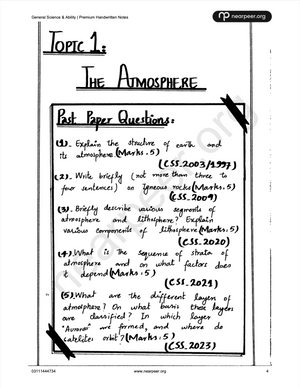 General Science & Ability | Premium Handwritten Notes
nearpeer.org
TOPIC 1:
THE ATMOSPHERE
Past Paper Questions:
(1). Explain the structure of earth and
its atmosphere (Marks. 5)
(CSS. 2003/1997)
(2). Write briefly (not more than three to
four sentences) on igneous rocks (Marks. 5)
(CSS. 2009)
(3). Briefly describe various segments of
atmosphere and lithosphere? Explain
various components of lithosphere (Marks. 5)
(CSS. 2020)
(4). What is the sequence of strain of
atmosphere and on what factors does
it depend (Marks. 5)
(CSS. 2021)
(5). What are the different layers of
atmosphere? On what basis these layers
are classified? In which layer
"Auroras" are formed, and where do
satellites orbit? (Marks. 5)
(CSS. 2023)
03111444734
www.nearpeer.org
4